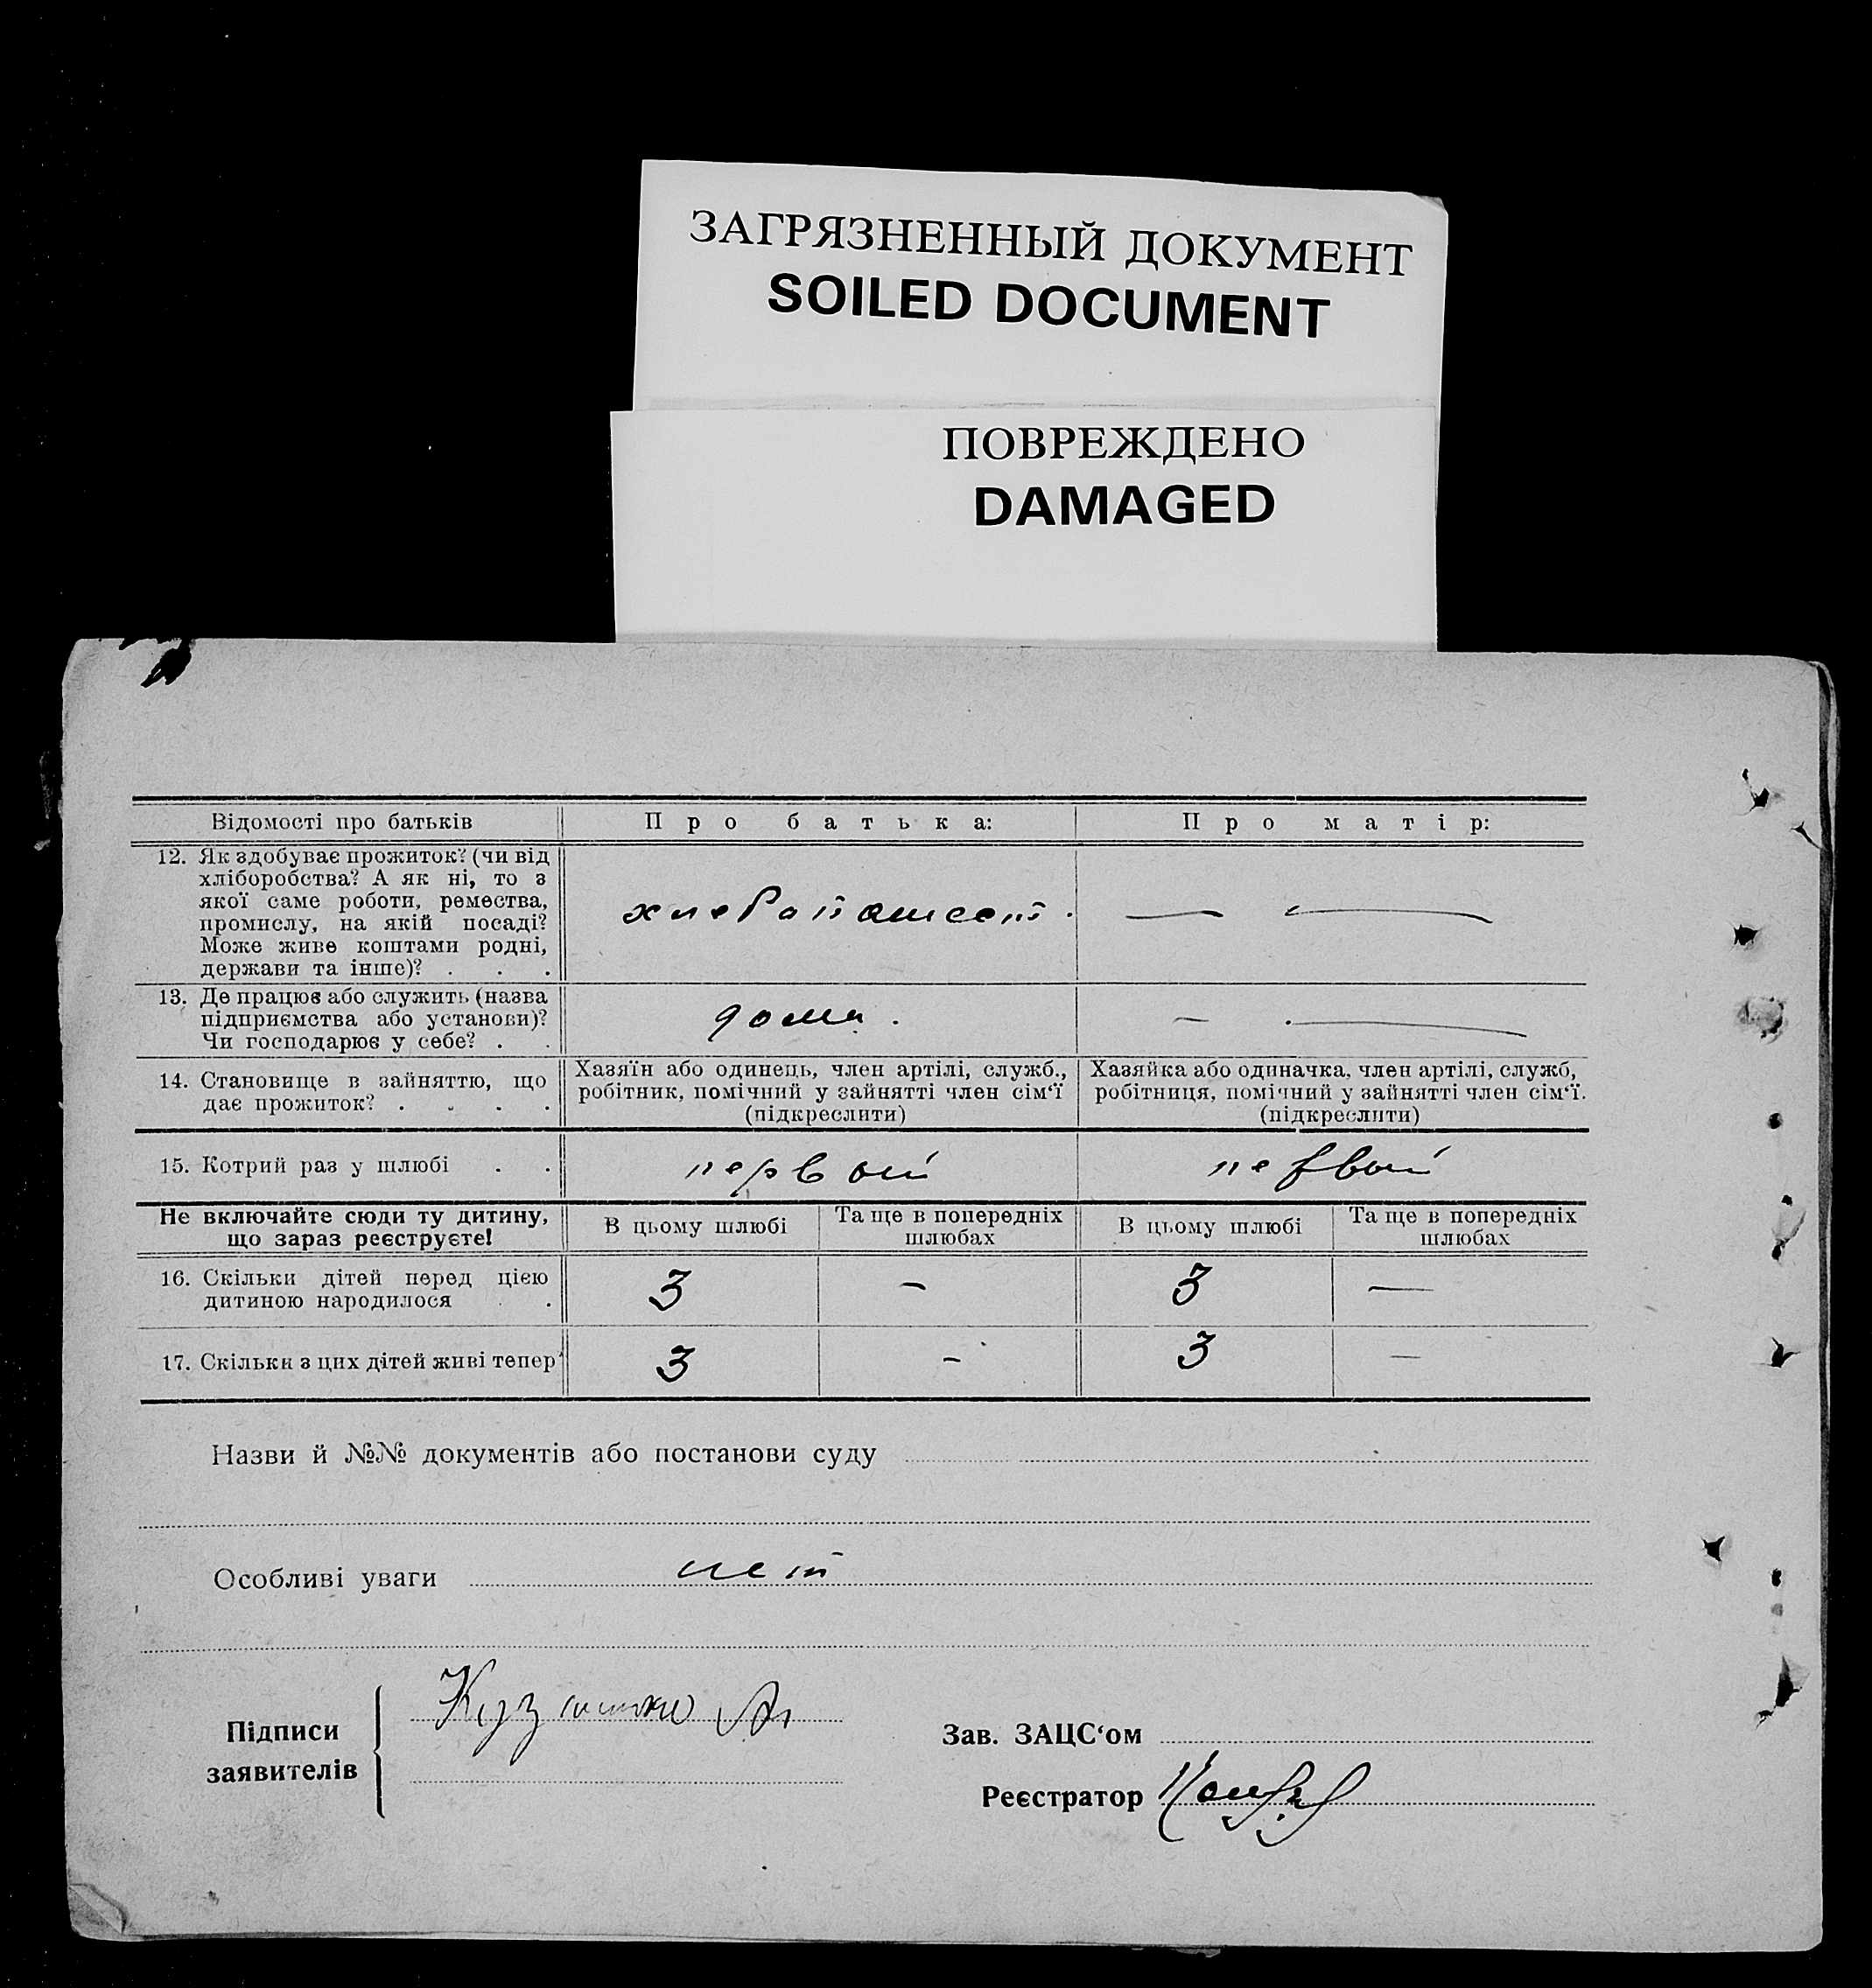 ЗАГРЯЗНЕННЫЙ ДОКУМЕНТ
SOILED DOCUMENT
ПОВРЕЖДЕНО
DAMAGED
Відомості про батьків Про батька: Про матір:
12. Як здобуває прожиток? (чи від
хліборобства? А як ні, то з
якої саме роботи, ремества,
промислу, на якій посаді?
Може живе коштами родні,
держави та інше)? . . .
хлебопашест. — —
13. Де працює або служить (назва
підприємства або установи)?
Чи господарює у себе? . .
дома. — . —
14. Становище в зайняттю, що
дає прожиток? . . . .
Хазяїн або одинець, член артілі, служб.,
робітник, помічний у зайнятті член сім‘ї
(підкреслити)
Хазяйка або одиначка, член артілі, служб,
робітниця, помічний у зайнятті член сім‘ї.
(підкреслити)
15. Котрий раз у шлюбі . . первый первый
Не включайте сюди ту дитину,
що зараз реєструєте!
В цьому шлюбі Та ще в попередніх
шлюбах
В цьому шлюбі Та ще в попередніх
шлюбах
16. Скільки дітей перед цією
дитиною народилося . .
3 — 3 —
17. Скільки з цих дітей живі тепер? 3 — 3 —
Назви й №№ документів або постанови суду
Особливі уваги нет
Підписи
заявителів
Зав. ЗАЦС‘ом
Реєстратор